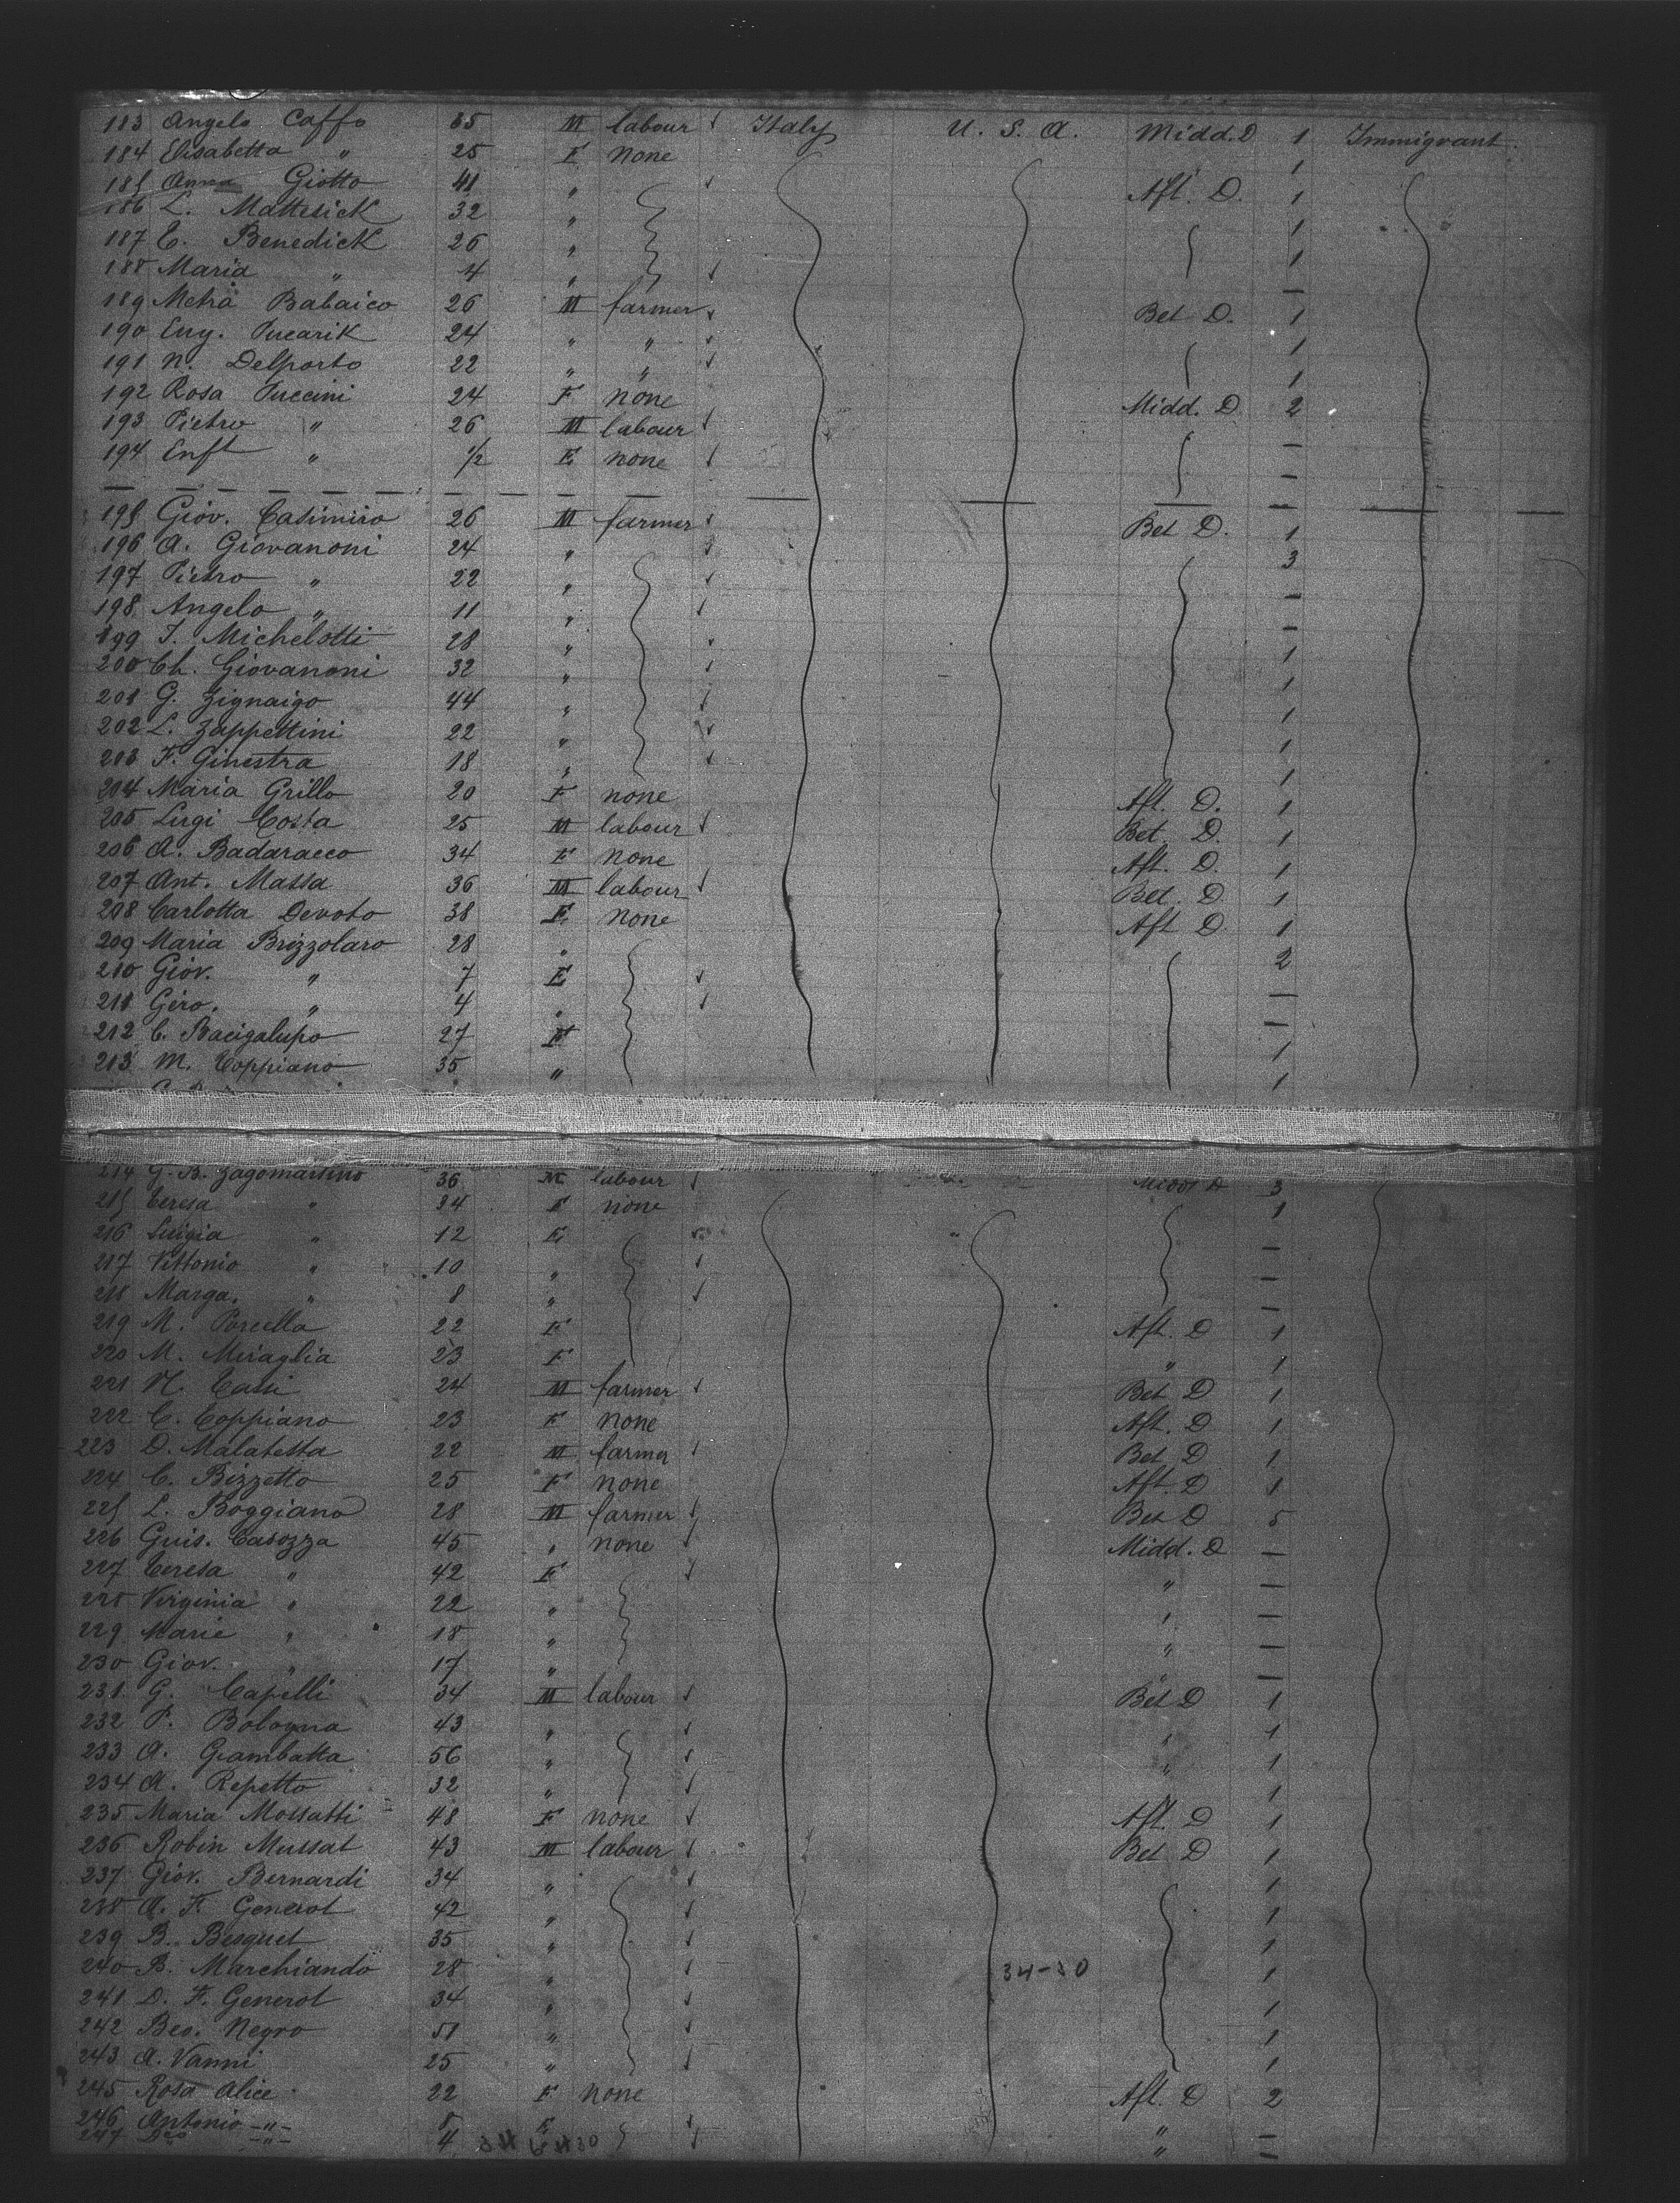 183 Angelo Caffo 35 M labour ✓ Italy U. S. A. Midd. D 1 Immigrant.
184 Elisabetta " 25 F none 1
185 Anna Giotto 41 " ✓ Aft. D. 1
186 L. Mattesick 32 " 1
187 E. Benedick 26 " 1
188 Maria " 4 " ✓ —
189 Metra Babaico 26 M farmer ✓ Bet D. 1
190 Eug. Pucarik 24 " " ✓ 1
191 N. Delporto 22 " " ✓ 1
192 Rosa Puccini 24 F none Midd. D 2
193 Pietro " 26 M labour ✓ —
194 Enft " 1/2 E none ✓ —
195 Giov. Casimiro 26 M farmer ✓ Bet D. 1
196 A. Giovanoni 24 " ✓ 3
197 Pietro " 22 " ✓ —
198 Angelo " 11 " ✓ —
199 J. Michelotti 28 " ✓ 1
200 Ch. Giovanoni 32 " ✓ 1
201 G. Zignaigo 44 " ✓ 1
202 L. Zappettini 22 " ✓ 1
203 F. Ginestra 18 " ✓ 1
204 Maria Grillo 20 F none Aft. D. 1
205 Luigi Costa 25 M labour ✓ Bet. D. 1
206 A. Badaracco 34 F none Aft. D. 1
207 Ant. Massa 36 M labour ✓ Bet. D 1
208 Carlotta Devoto 38 F. none Aft D. 1
209 Maria Brizzolaro 28 " 2
210 Giov. " 7 E ✓ —
211 Gero. " 4 " ✓ —
212 C. Bacigalupo 27 F 1
213 M. Coppiano 35 " 1
214 G. B. Zagomartino 36 M labour ✓ Midd D 3
215 Teresa " 34 F none 1
216 Luigia " 12 E —
217 Vittorio " 10 " ✓ —
218 Marga. " 8 " ✓ —
219 M. Porcella 22 F Aft. D 1
220 M. Miraglia 23 F " 1
221 N. Cassi 24 M farmer ✓ Bet D 1
222 C. Coppiano 23 F none Aft. D 1
223 D. Malatesta 22 M farmer ✓ Bet D 1
224 C. Bizzetto 25 F none Aft. D 1
225 L. Boggiano 28 M farmer ✓ Bet D 5
226 Guis. Casozza 45 " none ✓ Midd. D —
227 Teresa " 42 F ✓ " —
228 Virginia " 22 " " —
229 Marie " 18 " " —
230 Giov. " 17 " " —
231 G. Capelli 34 M labour ✓ Bet D 1
232 P. Bologna 43 " ✓ " 1
233 A. Giambatta 56 " ✓ " 1
234 A. Repetto 32 " ✓ 1
235 Maria Mossatti 48 F none ✓ Aft. D 1
236 Robin Mussat 43 M labour ✓ Bet D 1
237 Giov. Bernardi 34 " ✓ 1
238 A. F. Generot 42 " ✓ 1
239 B. Besquet 35 " ✓ 1
240 B. Marchiando 28 " ✓ 34-30 1
241 D. F. Generot 34 " ✓ 1
242 Beo. Negro 51 " ✓ 1
243 A. Vanni 25 " ✓ 1
245 Rosa Alice 22 F none Aft. D 2
246 Antonio -"- 8 E ✓ " —
247 -"- 4 ✓ " —